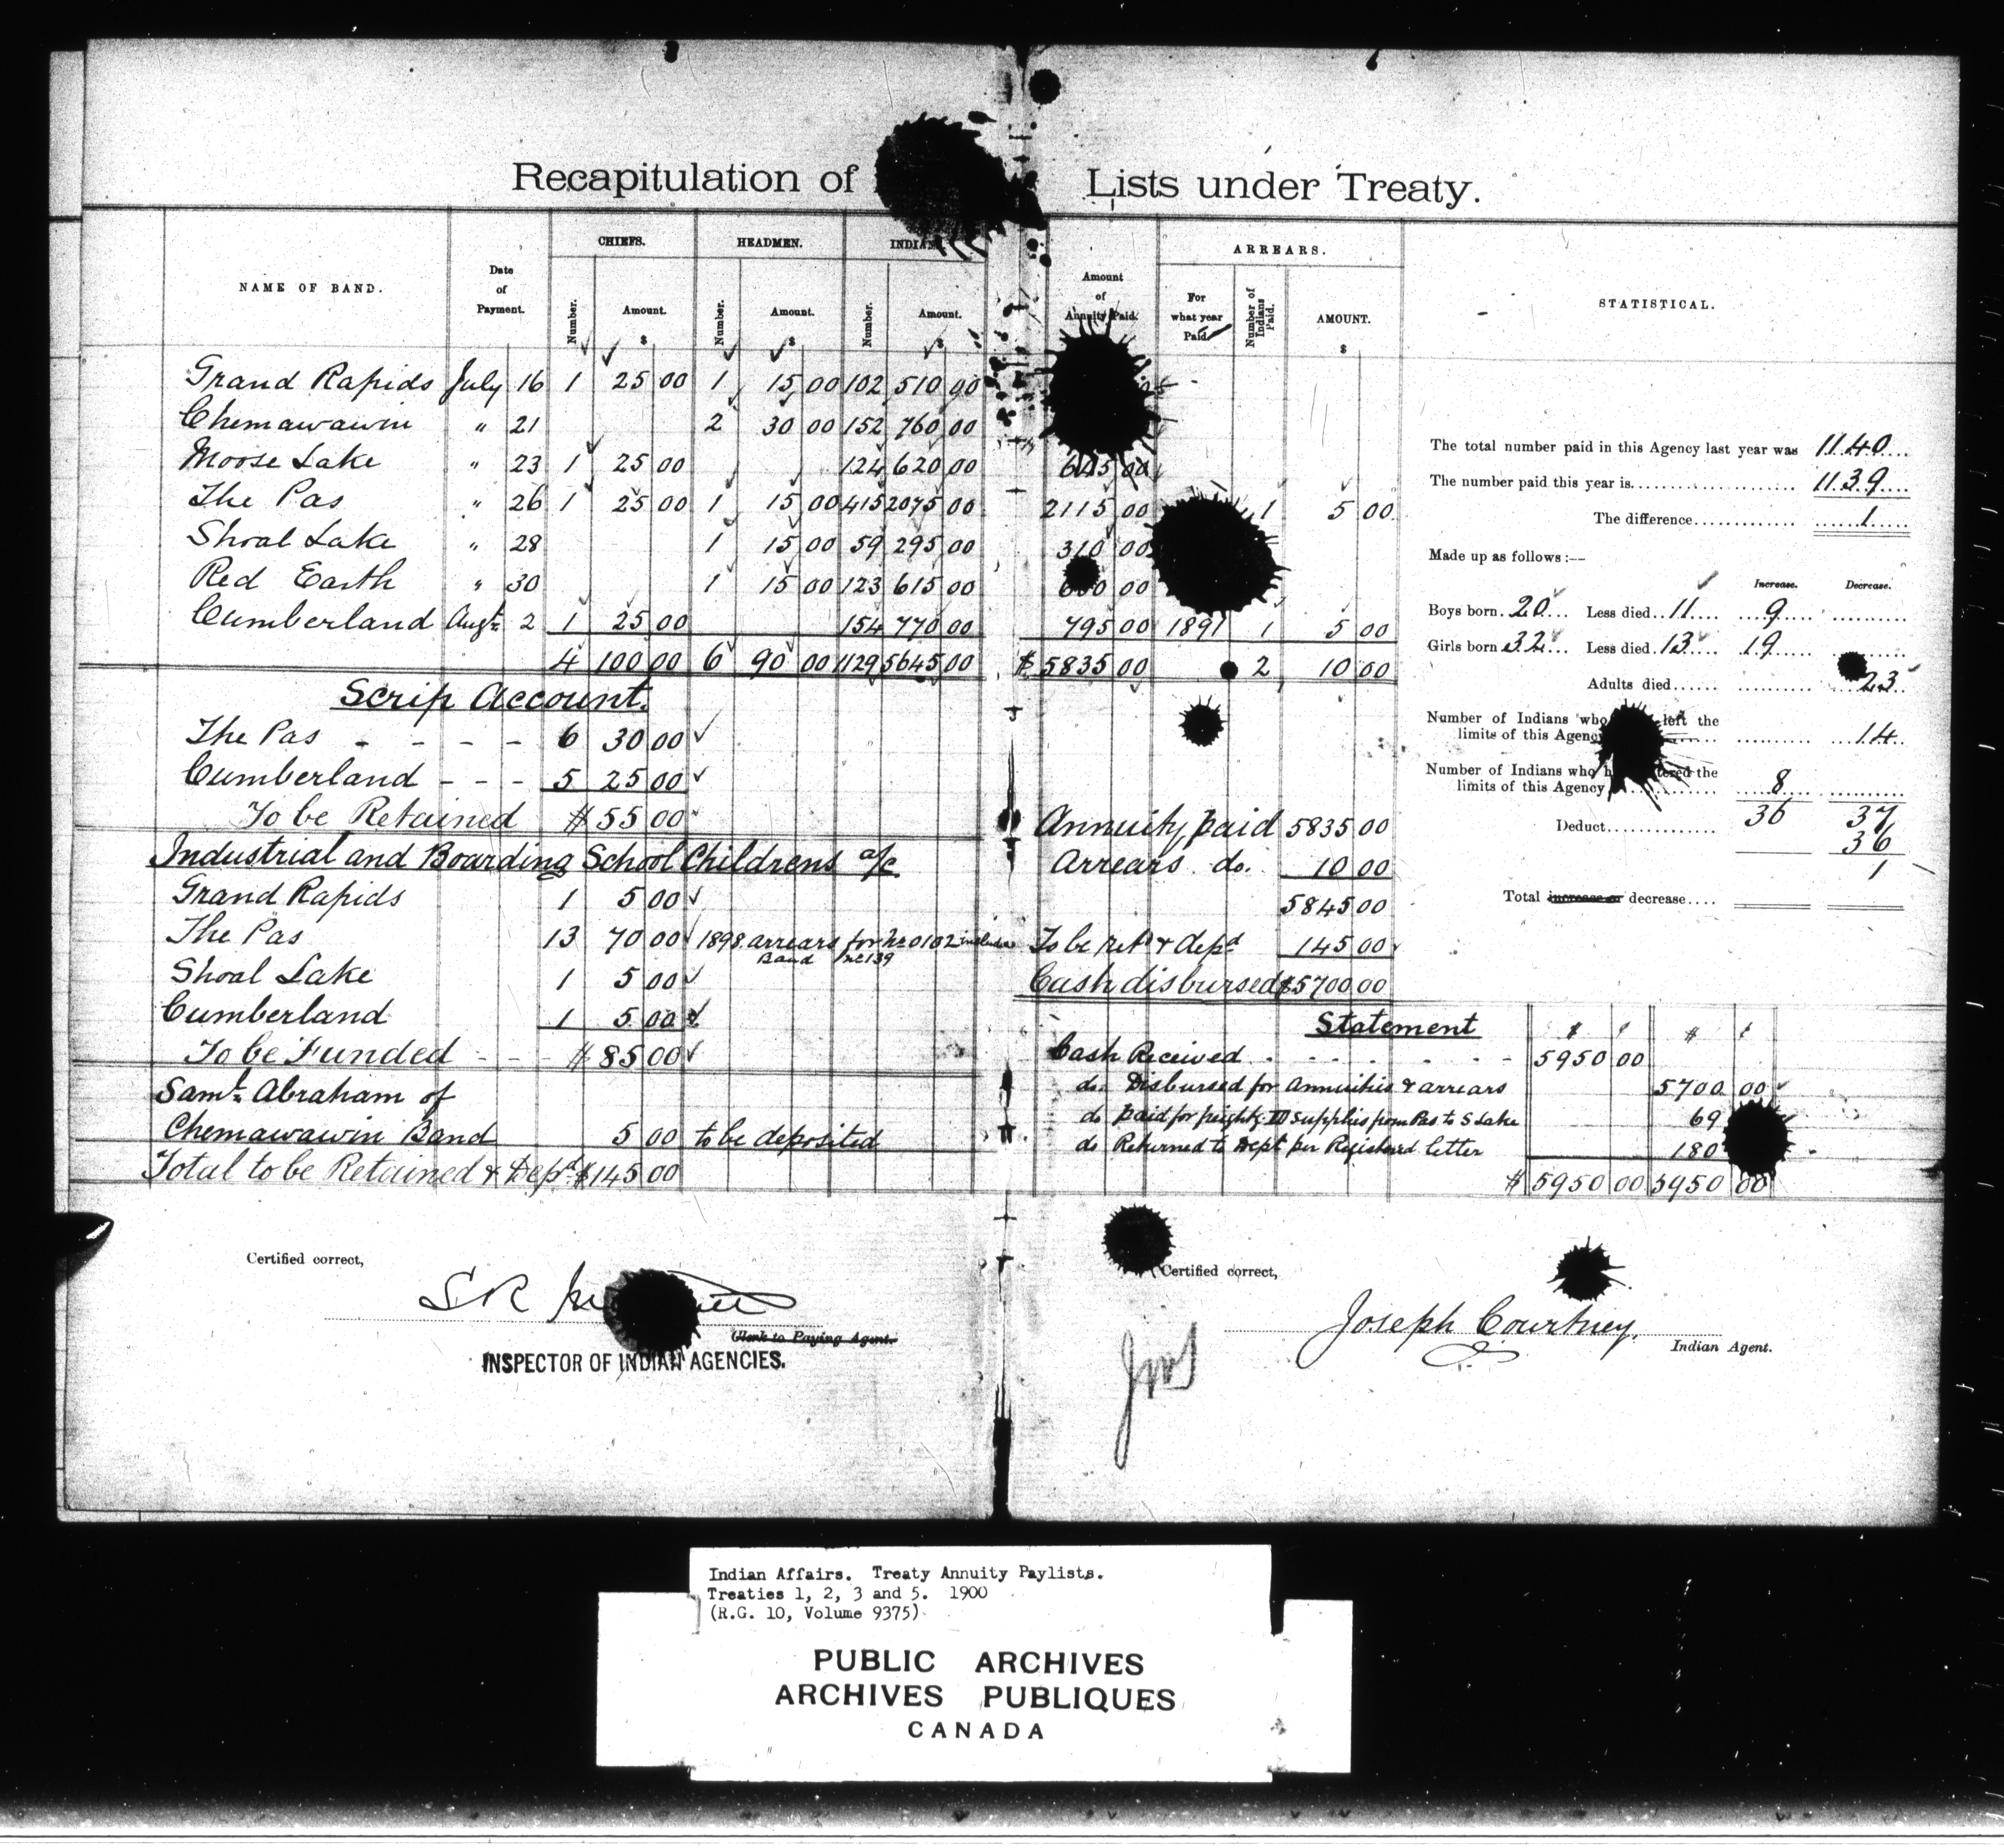 Recapitulation of Lists under Treaty.
NAME OF BAND. Date of Payment. CHIEFS. HEADMEN. INDIANS. Amount of Annuity Paid. ARREARS. STATISTICAL.
Number. Amount. $ Number. Amount. $ Number. Amount. $ For what year Paid. Number of Indians Paid. AMOUNT. $
Grand Rapids July 16 1 25 00 1 15 00 102 510 00
Chemawawin " 21 2 30 00 152 760 00
Moose Lake " 23 1 25 00 124 620 00 645 00
The Pas " 26 1 25 00 1 15 00 415 2075 00 2115 00 1 5 00
Shoal Lake " 28 1 15 00 59 295 00 310 00
Red Earth " 30 1 15 00 123 615 00 00
Cumberland Augt 2 1 25 00 154 770 00 795 00 1897 1 5 00
4 100 00 6 90 00 1129 5645 00 $ 5835 00 2 10 00
Scrip Account.
The Pas - - - - 6 30 00
Cumberland - - - 5 25 00
To be Retained $ 55 00
Industrial and Boarding School Childrens a/c
Grand Rapids 1 5 00
The Pas 13 70 00 1898 arrears for No 102
Band No 139
Shoal Lake 1 5 00
Cumberland 1 5 00
To be Funded - - - $ 85 00
Saml Abraham of
Chemawawin Band 5 00 to be deposited
Total to be Retained & Depd $ 145 00
Certified correct,
S R
Clerk to Paying Agent.
INSPECTOR OF INDIAN AGENCIES.
The total number paid in this Agency last year was 1140
The number paid this year is 1139
The difference 1
Made up as follows:—
Increase. Decrease.
Boys born 20 Less died 11 9
Girls born 32 Less died 13 19
Adults died 23
Number of Indians who left the
limits of this Agency 14
Number of Indians who the
limits of this Agency 8
36 37
Deduct 36
1
Total increase or decrease
Annuity paid 5835 00
Arrears do. 10 00
5845 00
To be ret & depd 145 00
Cash disbursed $5700 00
Statement $ ¢ $ ¢
Cash Received 5950 00
do Disbursed for Annuities & arrears 5700 00
do paid for supplies from Pas to S Lake 69
do Returned to Dept per Registered letter 180
$ 5950 00 5950 00
Certified correct,
Joseph Courtney.
Indian Agent.
Indian Affairs. Treaty Annuity Paylists.
Treaties 1, 2, 3 and 5. 1900
(R.G. 10, Volume 9375)
PUBLIC ARCHIVES
ARCHIVES PUBLIQUES
CANADA